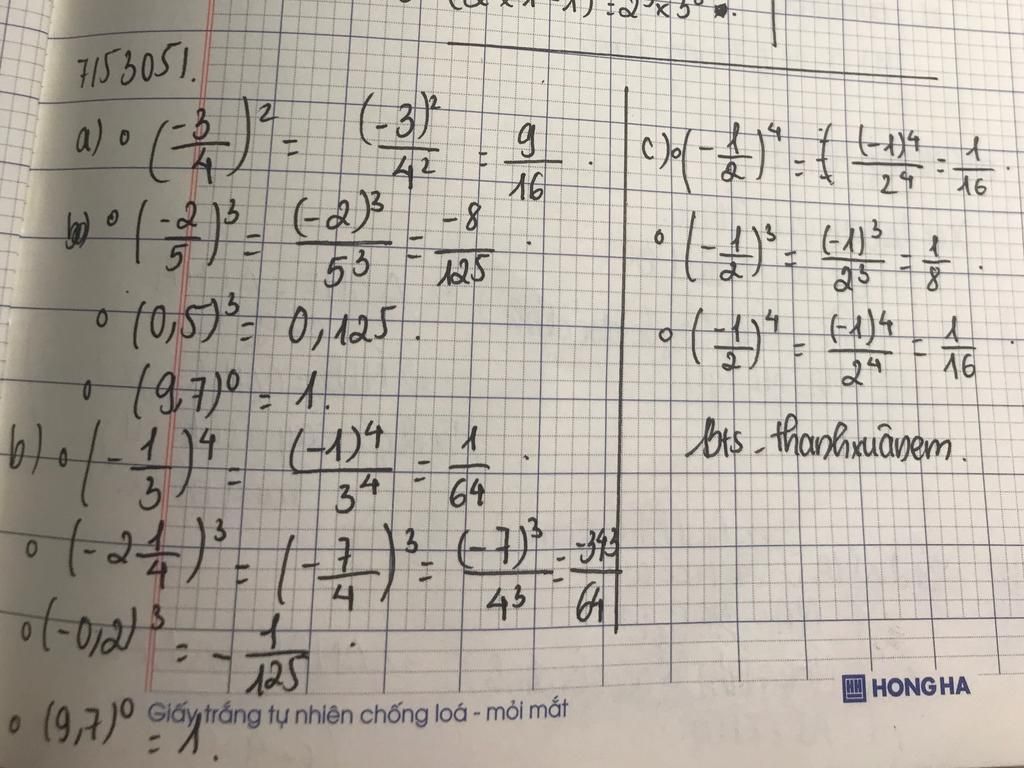 7153051.
a) o (-3/4)² = (-3)²/4² = 9/16 .
o (-2/5)³ = (-2)³/5³ = -8/125 .
o (0,5)³ = 0,125 .
o (9,7)⁰ = 1.
b) o (-1/3)⁴ = (-1)⁴/3⁴ = 1/64 .
o (-2 1/4)³ = (-7/4)³ = (-7)³/4³ = -343/64
o (-0,2)³ = -1/125 .
o (9,7)⁰ = 1.
c) o (-1/2)⁴ = (-1)⁴/2⁴ = 1/16 .
o (-1/2)³ = (-1)³/2³ = 1/8 .
o (-1/2)⁴ = (-1)⁴/2⁴ = 1/16 .
bts - thanhxuânem.
HONG HA
Giấy trắng tự nhiên chống loá - mỏi mắt